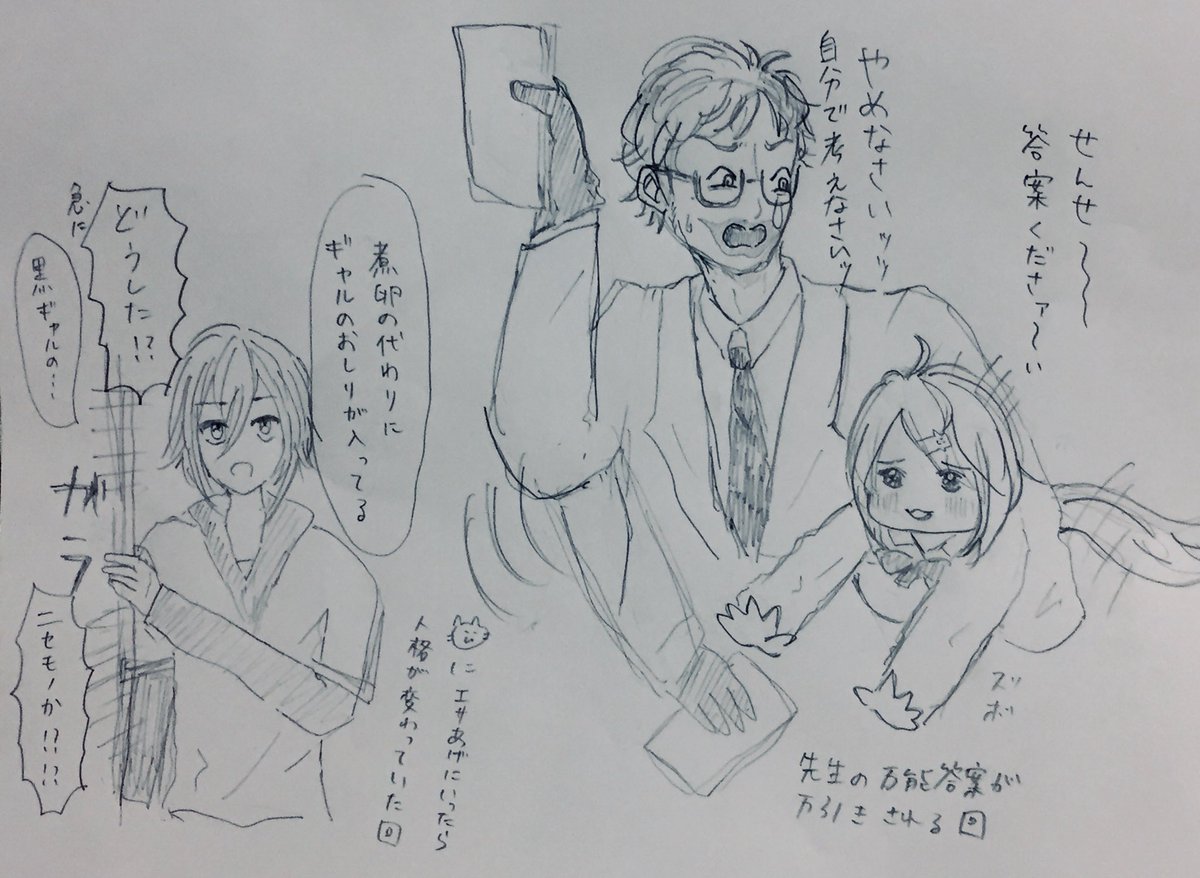 せんせ〜〜
答案くださァ〜い
やめなさいッッッ
自分で考えなさいッ
ズッ
ボ
先生の万能答案が
万引きされる回
煮卵の代わりに
ギャルのおしりが入ってる
どうした!?
急に
黒ギャルの…
ガ
ラ
ニセモノか!?!?
にエサあげにいったら
人格が変わっていた回